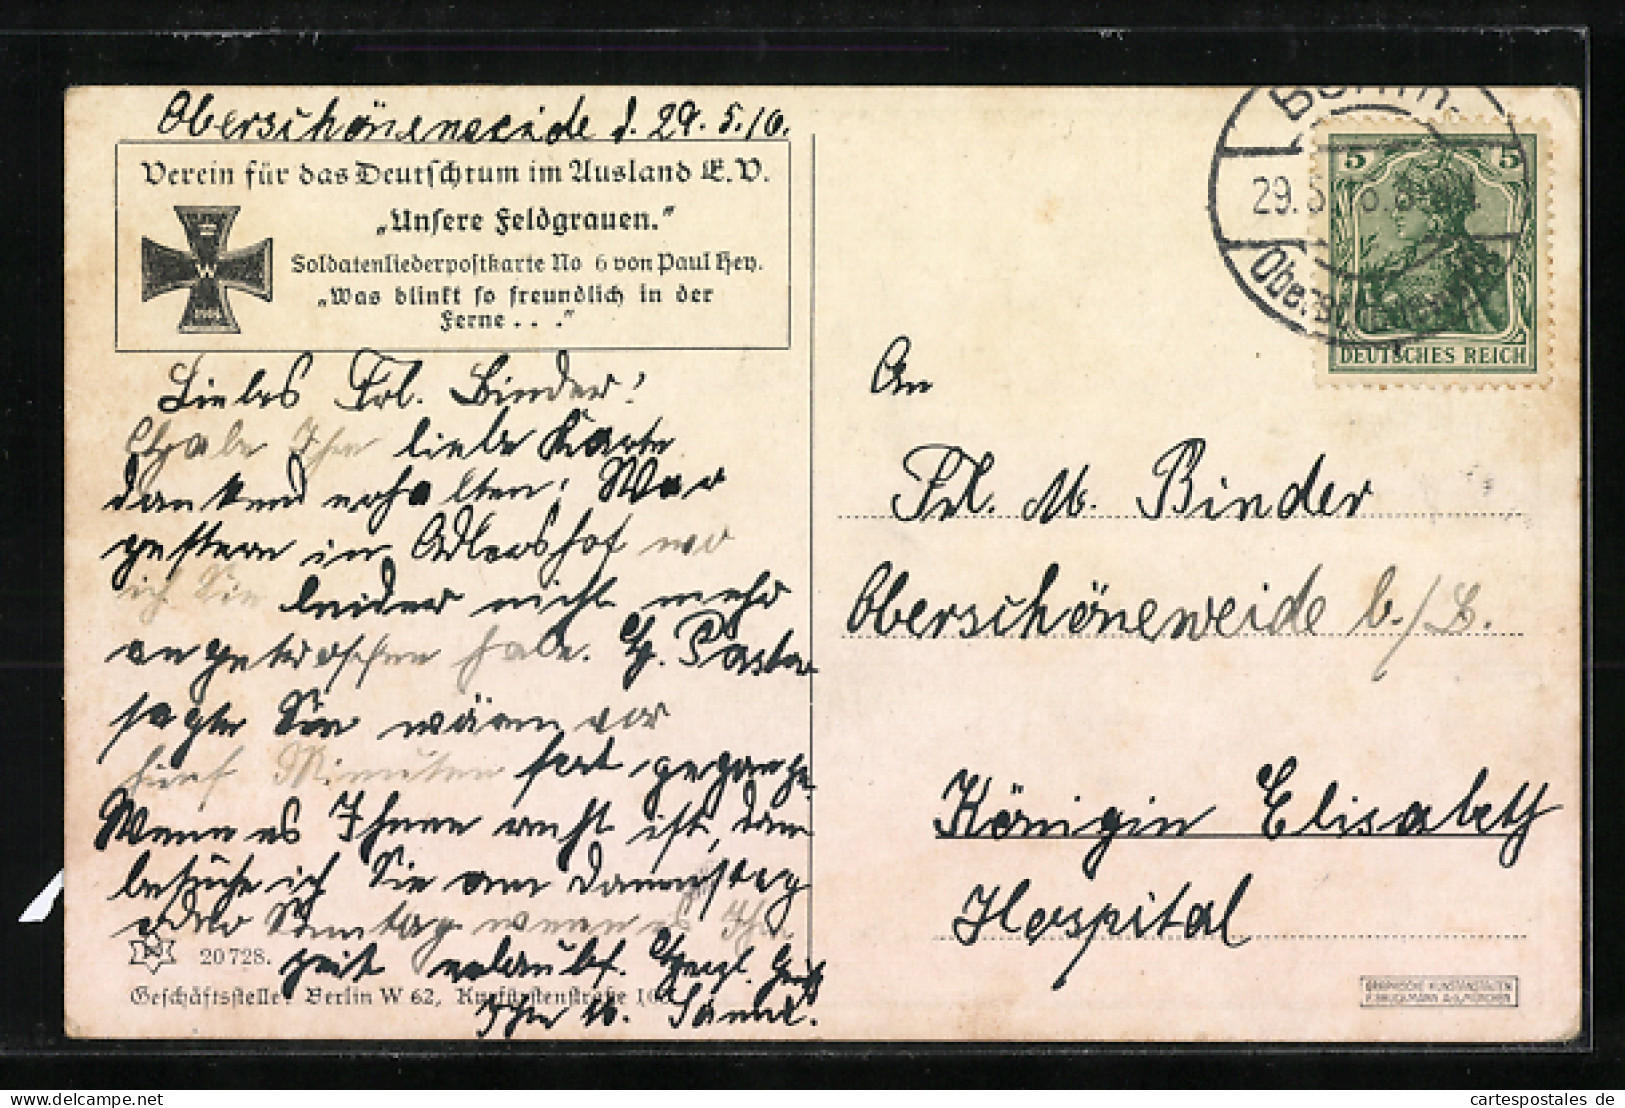 Oberschöneweide d. 29. 5. 16.
Verein für das Deutschtum im Ausland E.V.
„Unsere Feldgrauen."
Soldatenliederpostkarte No 6 von Paul Hey.
„Was blinkt so freundlich in der
Ferne . . ."
W
1914
Liebes Frl. Binder!
Habe Ihre liebe Karte
dankend erhalten; War
gestern in Adlershof wo
ich Sie leider nicht mehr
angetroffen habe. H. Pastor
sagte Sie wären vor
fünf Minuten fort gegange.
Wenn es Ihnen recht ist, dann
besuche ich Sie am
oder Sonntag wenn es Ihre
Zeit erlaubt. Herzl. Gruß
Ihr
20728.
Geschäftsstelle: Berlin W 62, Kurfürstenstraße
Berlin.
29.5
Oberschöneweide
5 5
DEUTSCHES REICH
An
Frl. M. Binder
Oberschöneweide b./B.
Königin Elisabeth
Hospital
GRAPHISCHE KUNSTANSTALTEN
F. BRUCKMANN A.G. MÜNCHEN
cartespostales de